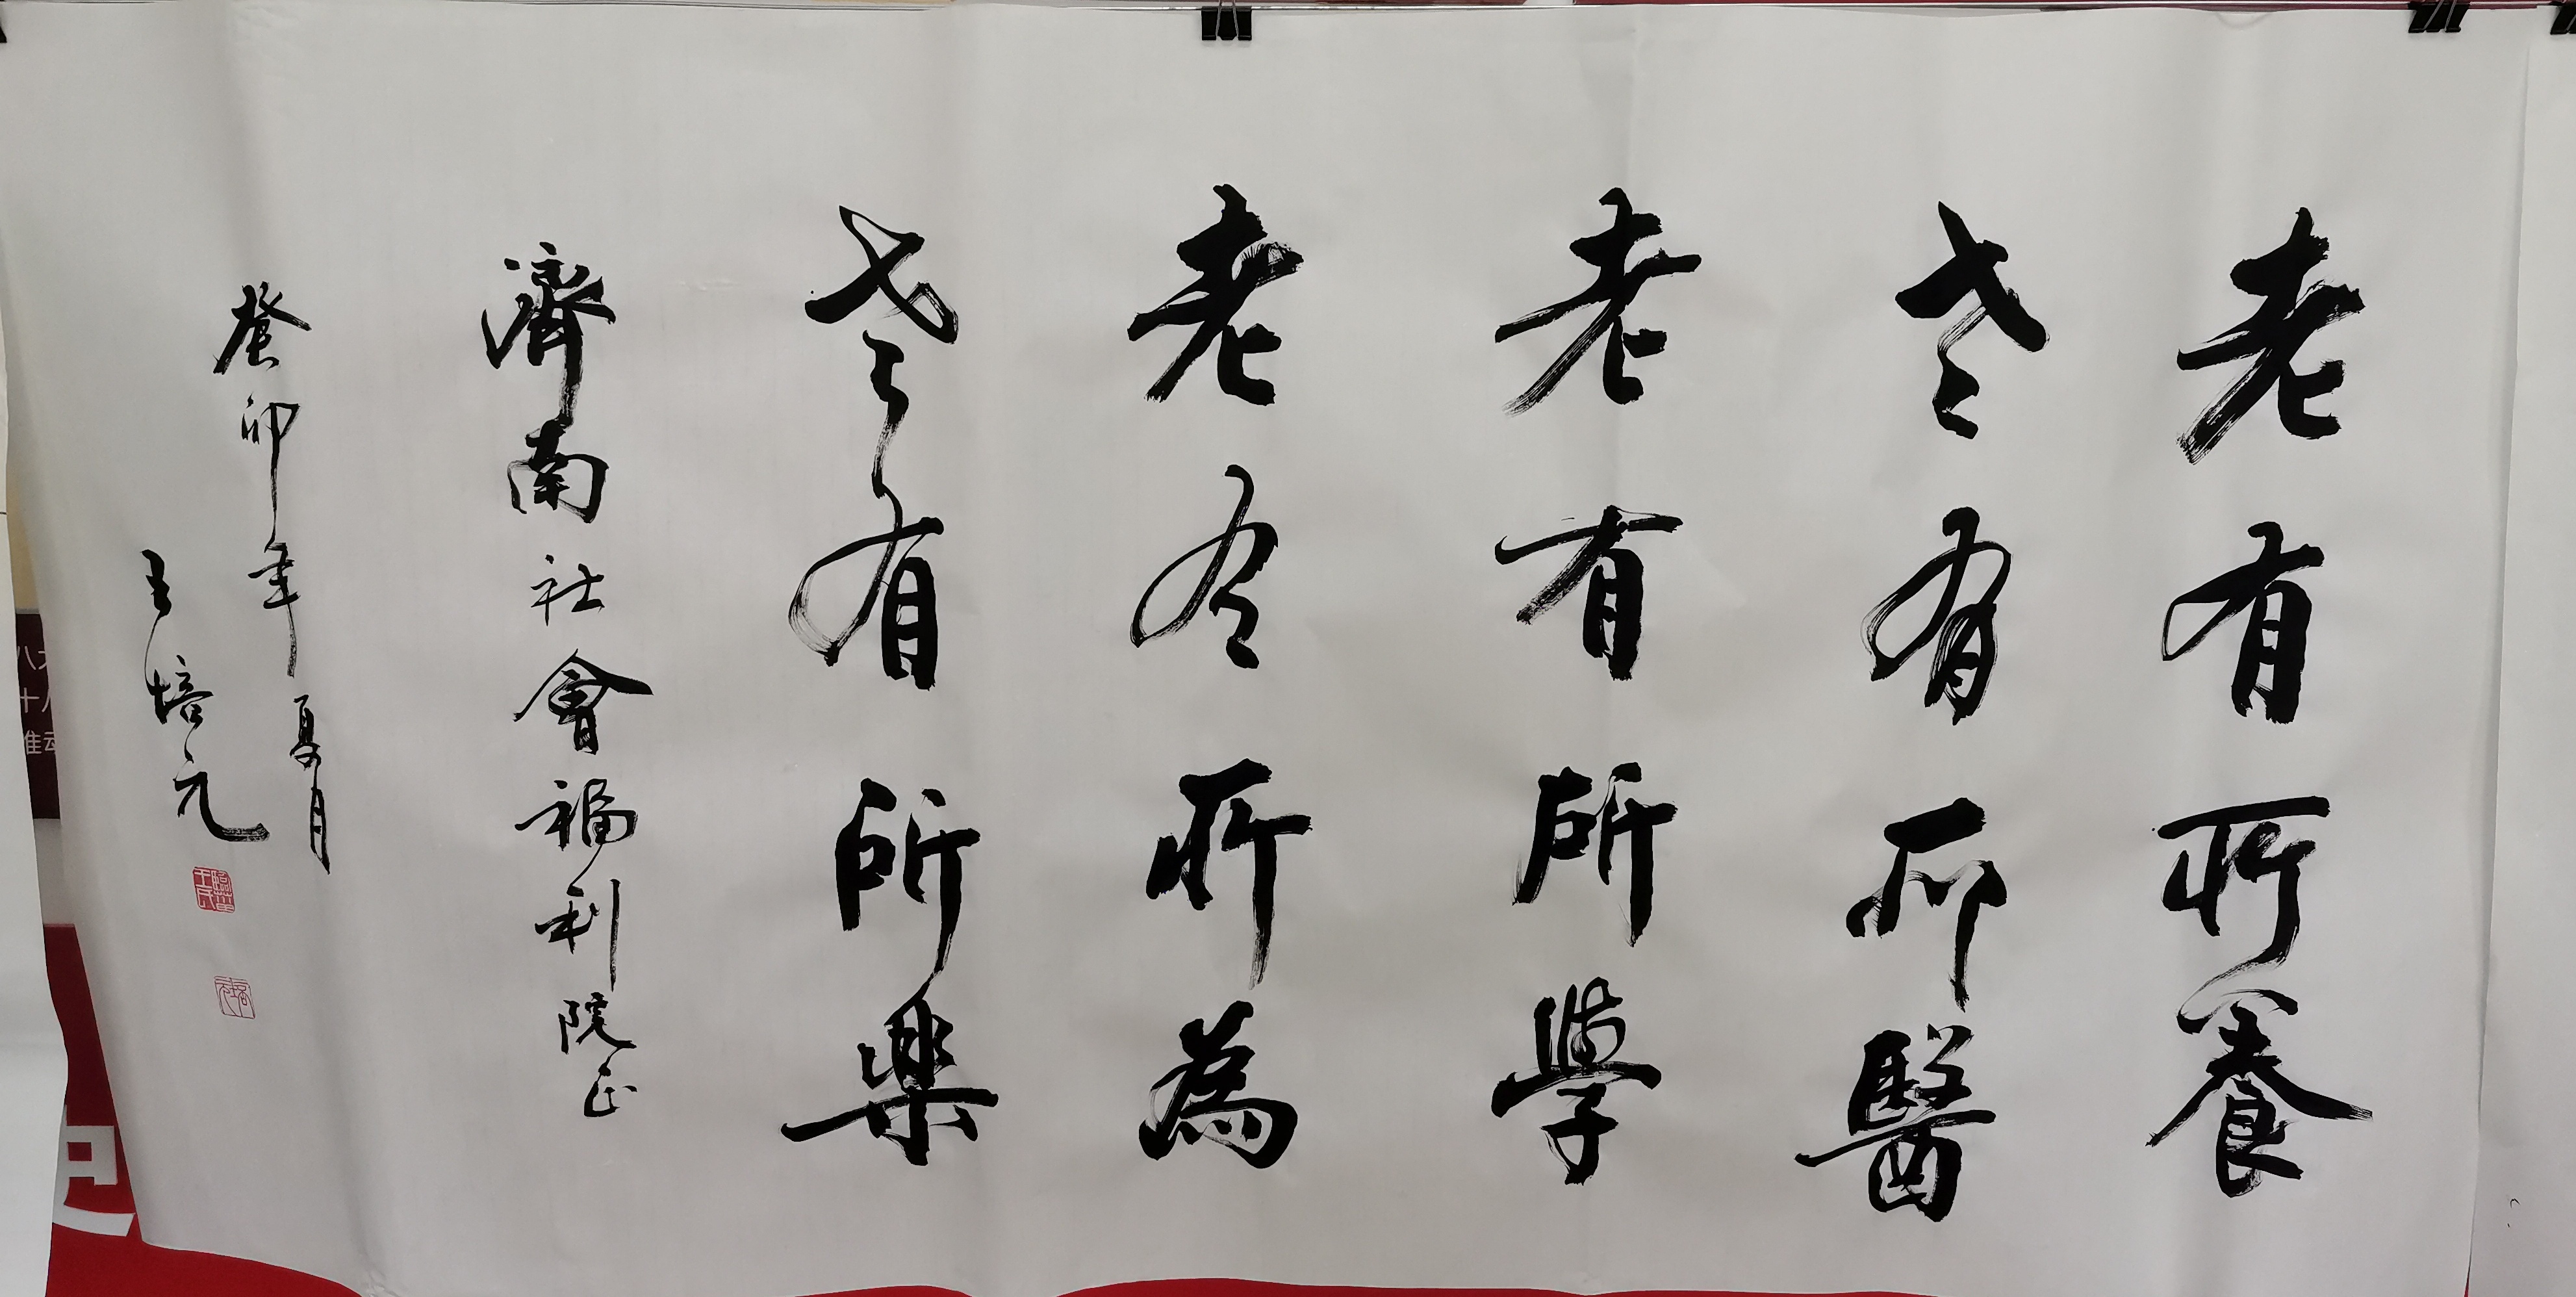 老有所養
老有所醫
老有所學
老有所為
老有所樂
濟南社會福利院正
癸卯年夏月
王培元